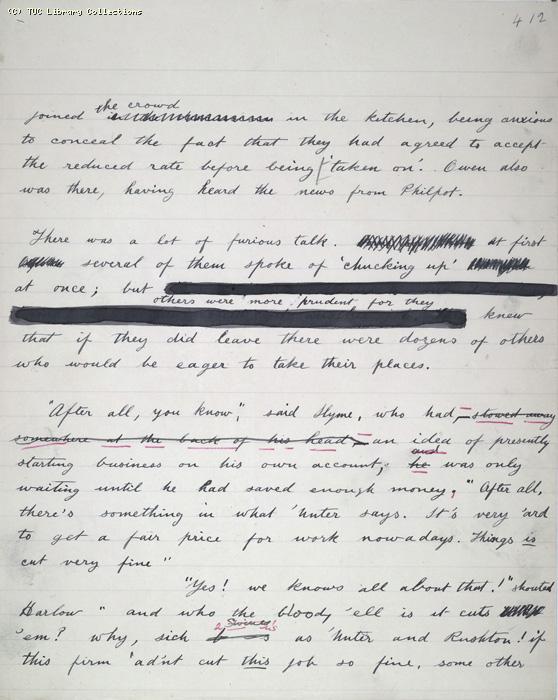 (C) TUC Library Collections
412
the crowd
joined in the kitchen, being anxious
to conceal the fact that they had agreed to accept
the reduced rate before being 'taken on'. Owen also
was there, having heard the news from Philpot.
There was a lot of furious talk. at first
several of them spoke of 'chucking up'
at once; but
others were more prudent for they
knew
that if they did leave there were dozens of others
who would be eager to take their places.
"After all, you know", said Slyme, who had, – stowed away
somewhere at the back of his head, – an idea of presently
and
starting business on his own account; he was only
waiting until he had saved enough money, "After all,
there's something in what 'Unter says. It's very 'ard
to get a fair price for work nowadays. Things is
cut very fine"
"Yes! we knows all about that!" shouted
Harlow " and who the bloody 'ell is it cuts
'em? why, sich as 'Unter and Rushton! if
this firm 'adn't cut this job so fine, some other